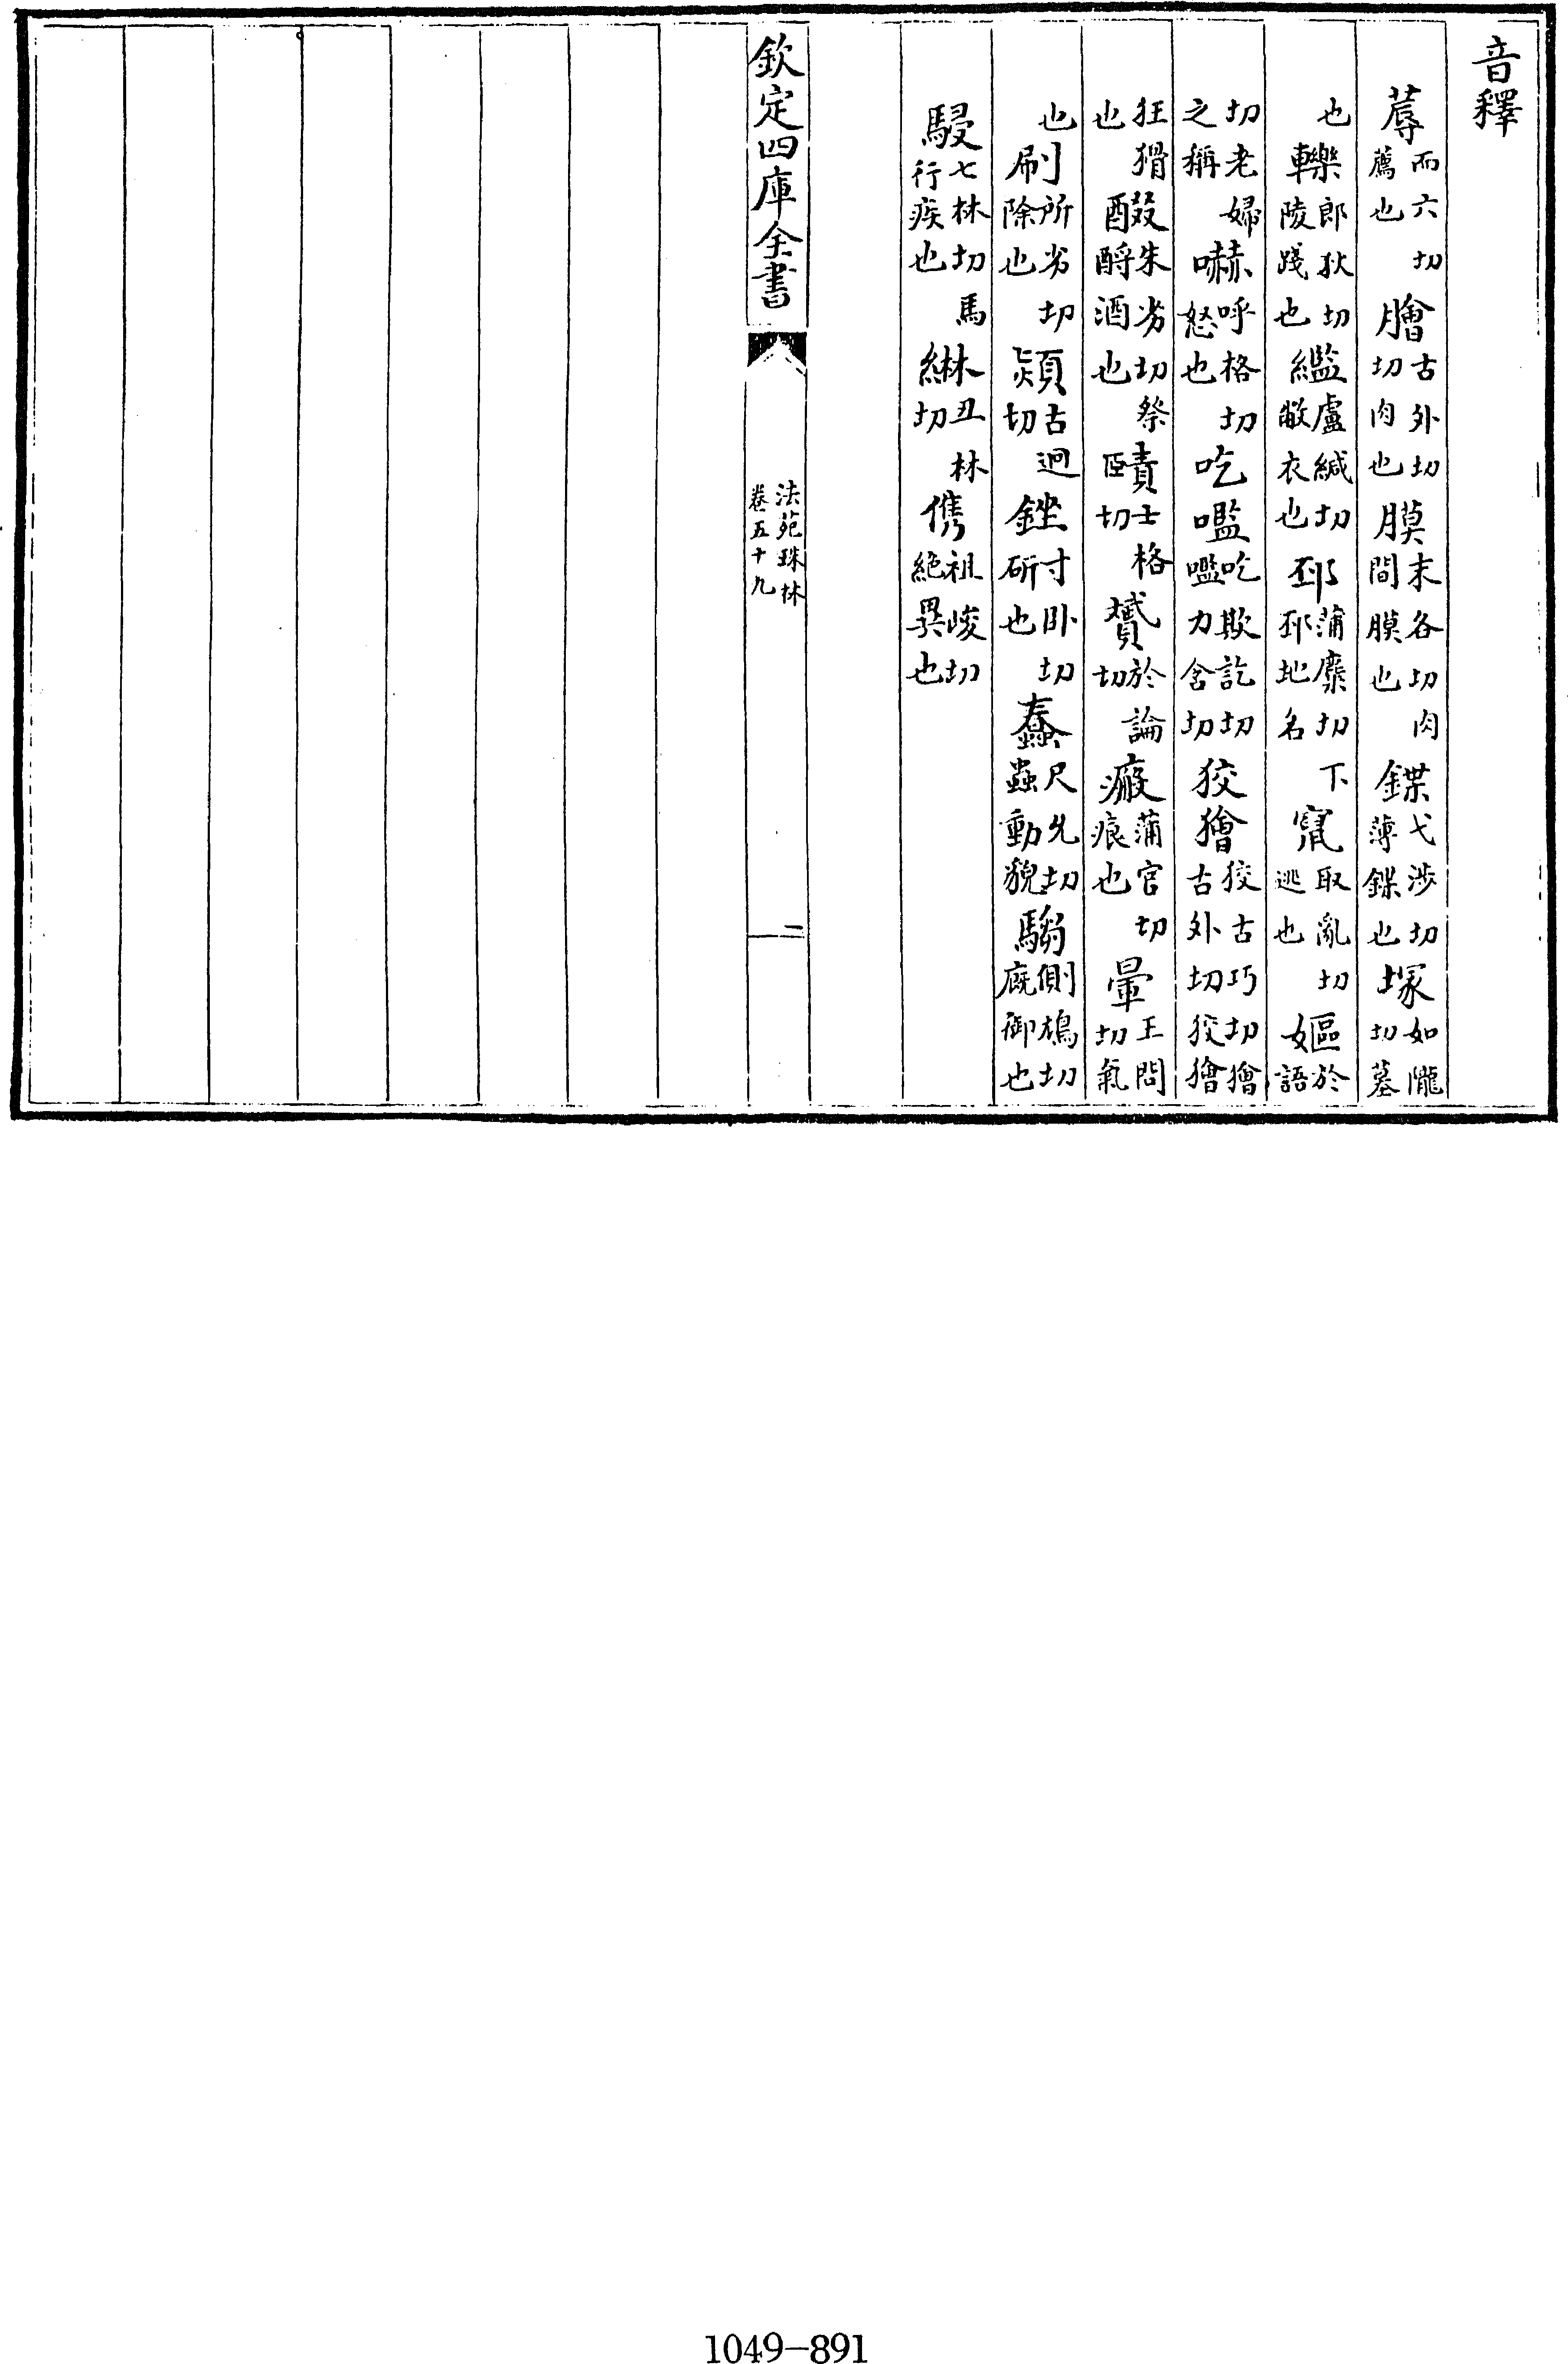 音釋
蓐而六切薦也膾古外切切肉也膜末各切肉間膜也鍱弋涉切薄鍱也塚如隴切墓
也轢郎狄切陵踐也繿盧緘切敝衣也邳蒲麋切下邳地名竄取亂切逃也嫗於語
切老婦之稱嚇呼格切怒也吃嚂吃欺訖切嚂力含切狡獪狡古巧切獪古外切狡獪
狂猾也醊朱劣切祭酹酒也賾士格切贇於論切瘢蒲官切痕也暈王問切氣
也刷所劣切除也熲古迥切銼寸卧切斫也蠢尺允切蟲動貌騶側鳩切廐御也
駸七林切馬行疾也綝丑林切儁祖峻切絶異也
欽定四庫全書
法苑珠林
卷五十九
二
1049-891